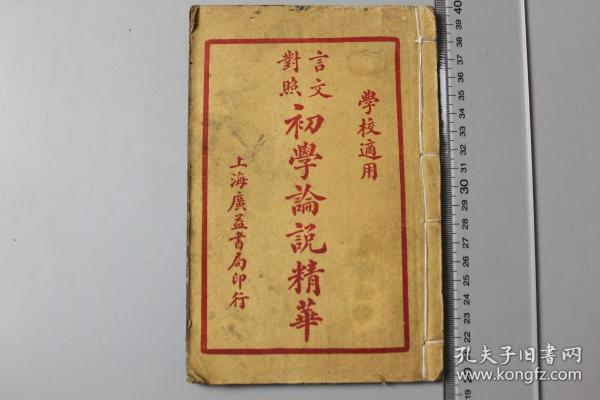 學校適用
言文
對照
初學論説精華
上海廣益書局印行
40
39
38
37
36
35
34
33
32
31
30
29
28
27
26
25
24
23
22
19
18
17
16
15
14
13
12
11
10
9
孔夫子旧书网
www.kongfz.com